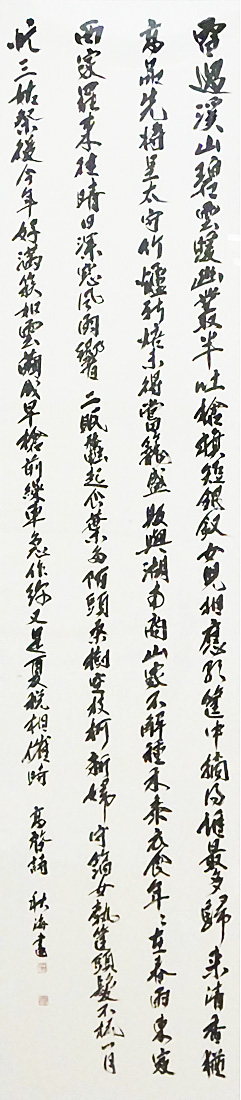 雷過溪山碧雲暖幽叢半吐槍旗短銀釵女兒相應歌筐中摘得誰最多歸来清香猶
高品先將呈太守竹爐新焙未得嘗籠盛販與湖南商山家不解種禾黍衣食年〻在春雨東家
西家罷来往晴日深窓風雨響二眠蠶起食葉多陌頭桑樹空枝柯新婦守箔女執筐頭髮不梳一月
忙三姑祭後今年好滿簇如雲繭成早檐前繰車急作絲又是夏稅相催時 高啓詩 秋海書